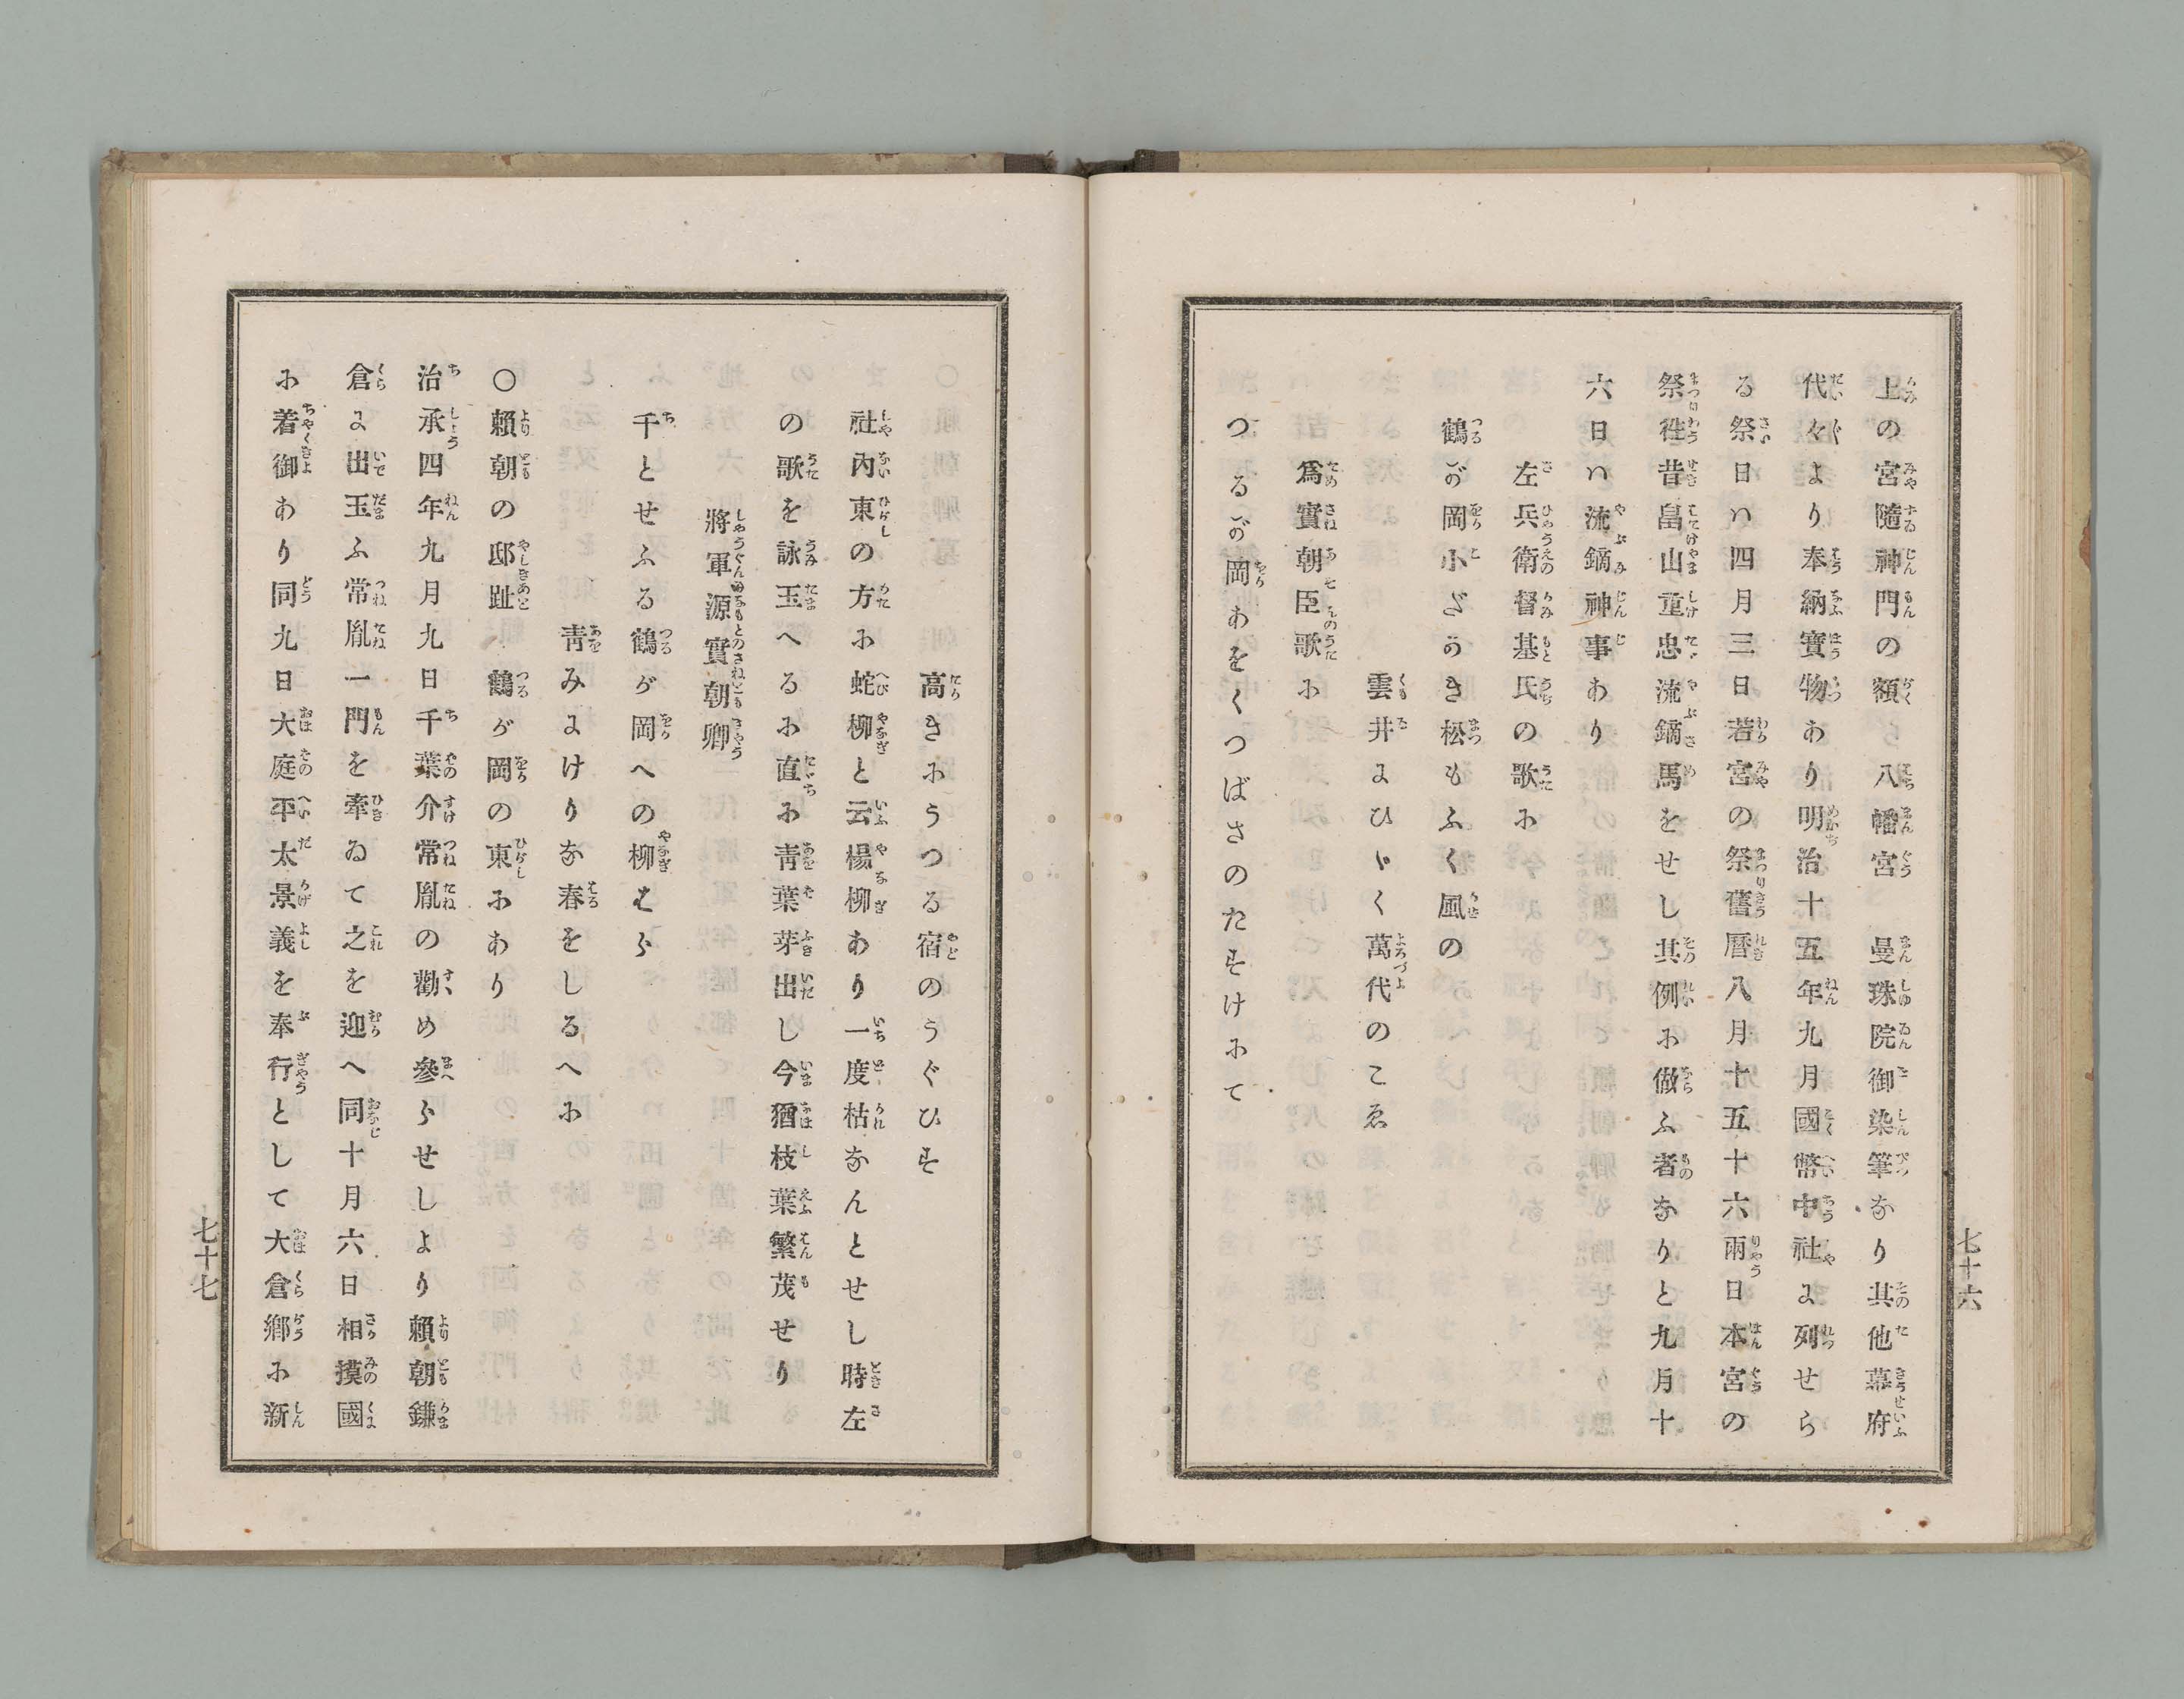 上の宮隨神門の額　八幡宮　曼珠院御染筆なり其他幕府
代々より奉納寳物あり明治十五年九月國幣中社に列せら
る祭日ハ四月三日若宮の祭舊曆八月十五十六兩日本宮の
祭徃昔畠山重忠流鏑馬をせし其例に倣ふ者なりと九月十
六日ハ流鏑神事あり
左兵衛督基氏の歌に
鶴が岡小だかき松もふく風の
雲井にひゞく萬代のこゑ
爲實朝臣歌に
つるが岡あをくつばさのたすけにて
七十六
高きにうつる宿のうぐひす
社內東の方に蛇柳と云楊柳あり一度枯なんとせし時左
の歌を詠玉へるに直に靑葉芽出し今猶枝葉繁茂せり
將軍源實朝卿
千とせふる鶴が岡への柳はら
靑みにけりな春をしるへに
〇賴朝の邸趾　鶴が岡の東にあり
治承四年九月九日千葉介常胤の勸め參らせしより賴朝鎌
倉に出玉ふ常胤一門を牽ゐて之を迎へ同十月六日相摸國
に着御あり同九日大庭平太景義を奉行として大倉鄉に新
七十七